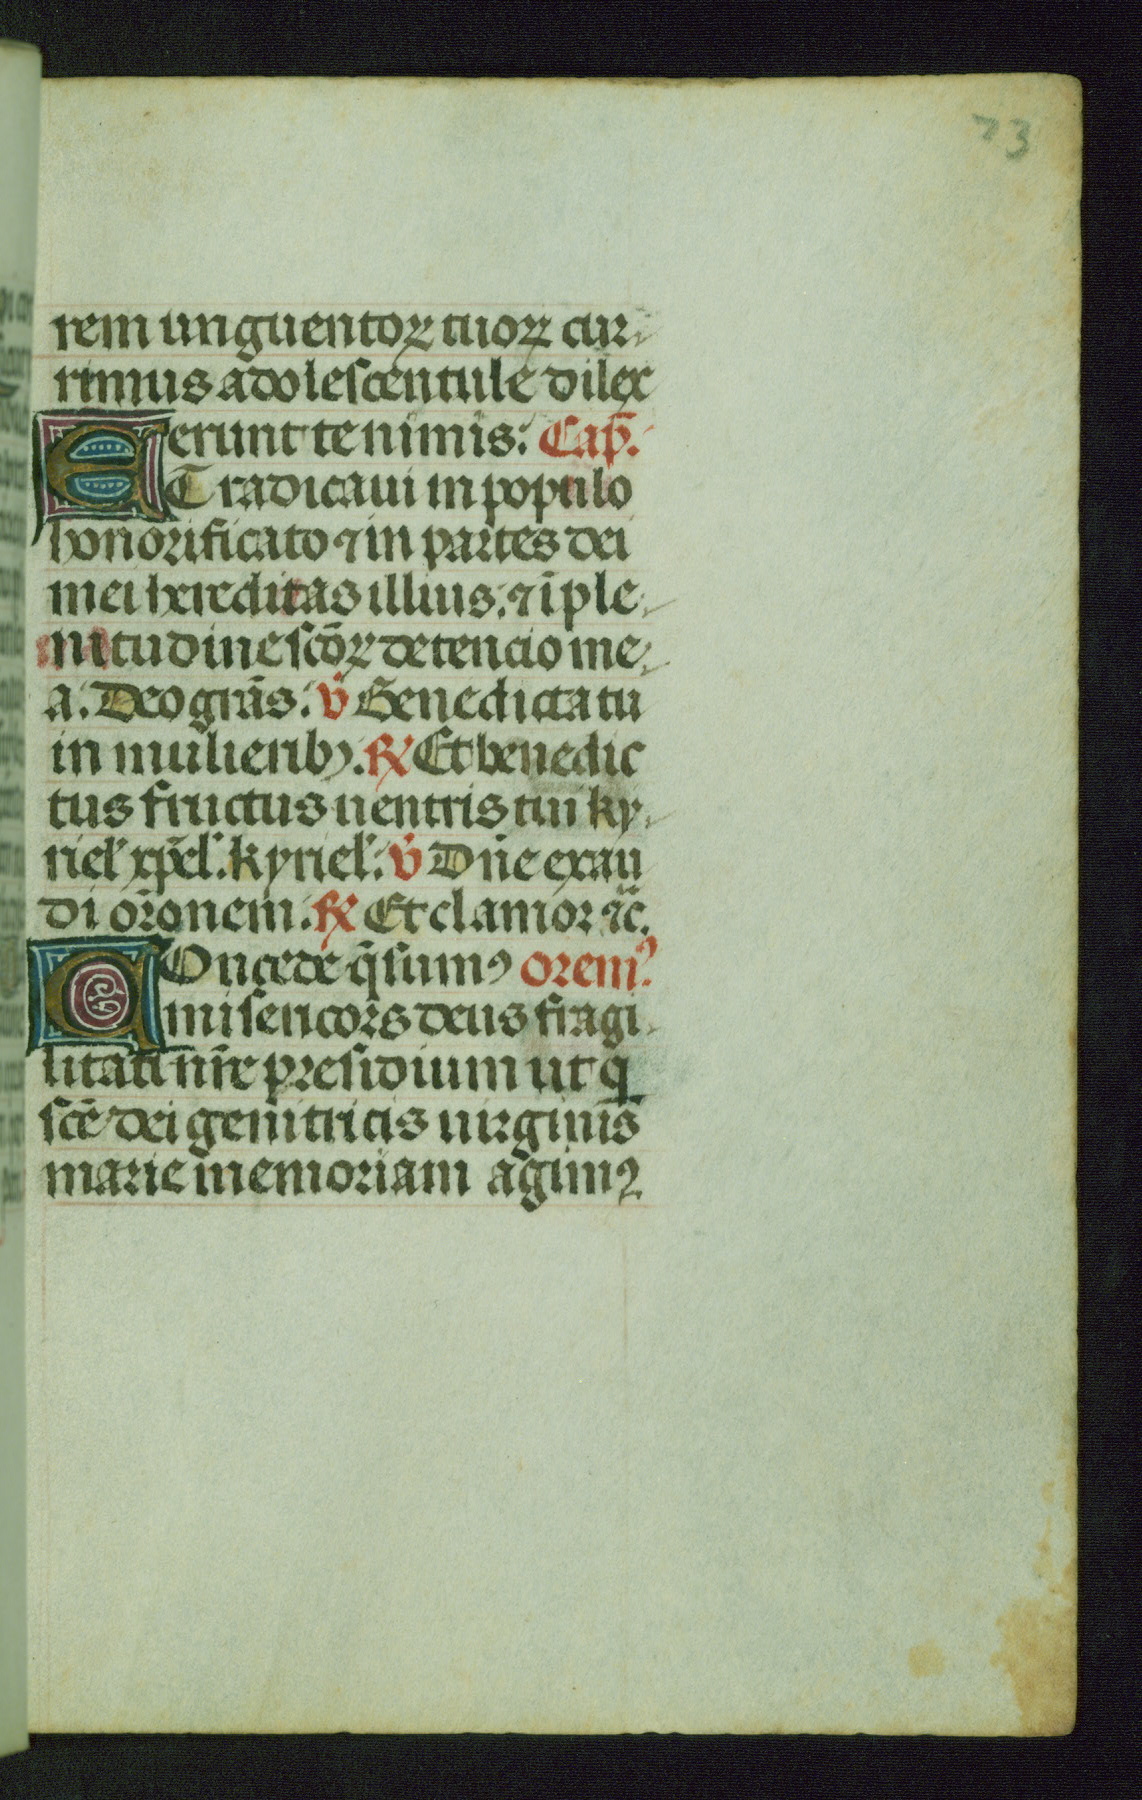 73
rem unguentoꝝ tuoꝝ cur-
rimus adolescentule dilex
erunt te nimis: Cap̄.
ET radicaui in populo
honorificato ⁊ in partes dei
mei hereditas illius: ⁊ ī ple-
nitudine sc̄oꝝ detencio me-
a. Deo grās. v̄ Benedicta tu
in mulierib9. ℟ Et benedic
tus fructus uentris tui ky-
riel' xp̄el'. kyriel'. v̄ Dn̄e exau
di or̄onem. ℟ Et clamor ⁊c̄.
COncede q̄sumꝰ oremꝰ.
misericors deus fragi-
litati nr̄e presidium ut q̄
sc̄e dei genitricis uirginis
marie memoriam agimꝰ